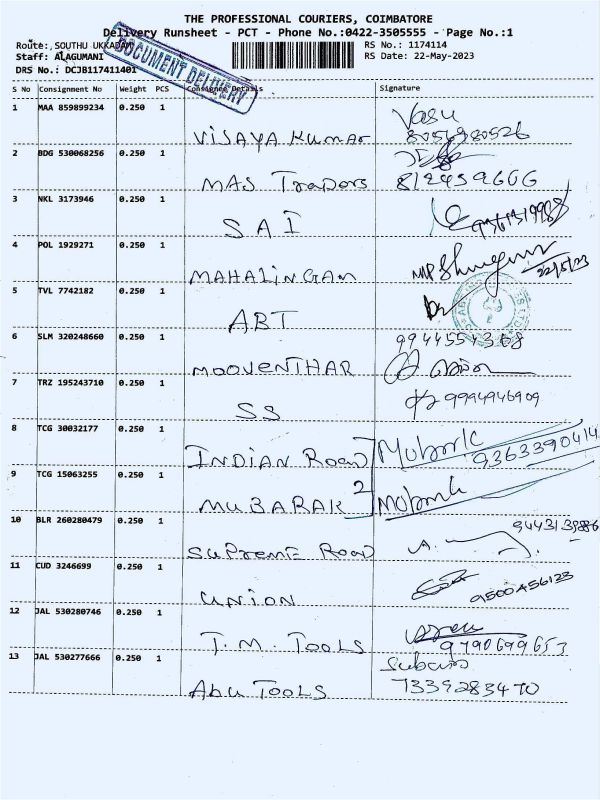 THE PROFESSIONAL COURIERS, COIMBATORE
Delivery Runsheet - PCT - Phone No.:0422-3505555 - Page No.:1
Route: SOUTHU UKKADAM RS No.: 1174114
Staff: ALAGUMANI RS Date: 22-May-2023
DRS No.: DCJB117411401
DOCUMENT DELIVERY
S No Consignment No Weight PCS Consignee Details Signature
1 MAA 859899234 0.250 1 Vasu
VIJAYA Kumar 8056980526
2 BDG 530068256 0.250 1
MAS Traders 812459606
3 NKL 3173946 0.250 1
SAI
4 POL 1929271 0.250 1
MAHALINGAM 22/5/23
5 TVL 7742182 0.250 1
ABT
6 SLM 320248660 0.250 1
MOOVENTHAR
7 TRZ 195243710 0.250 1
SS 9994946909
8 TCG 30032177 0.250 1 Mubarak
INDIAN Road 9363390414
9 TCG 15063255 0.250 1
MUBARAK 2 Mubarak
10 BLR 260280479 0.250 1
SUPREME Road
11 CUD 3246699 0.250 1
UNION 9500456123
12 JAL 530280746 0.250 1
T.M. TOOLS 9790699653
13 JAL 530277666 0.250 1
ABU TOOLS 7339283470